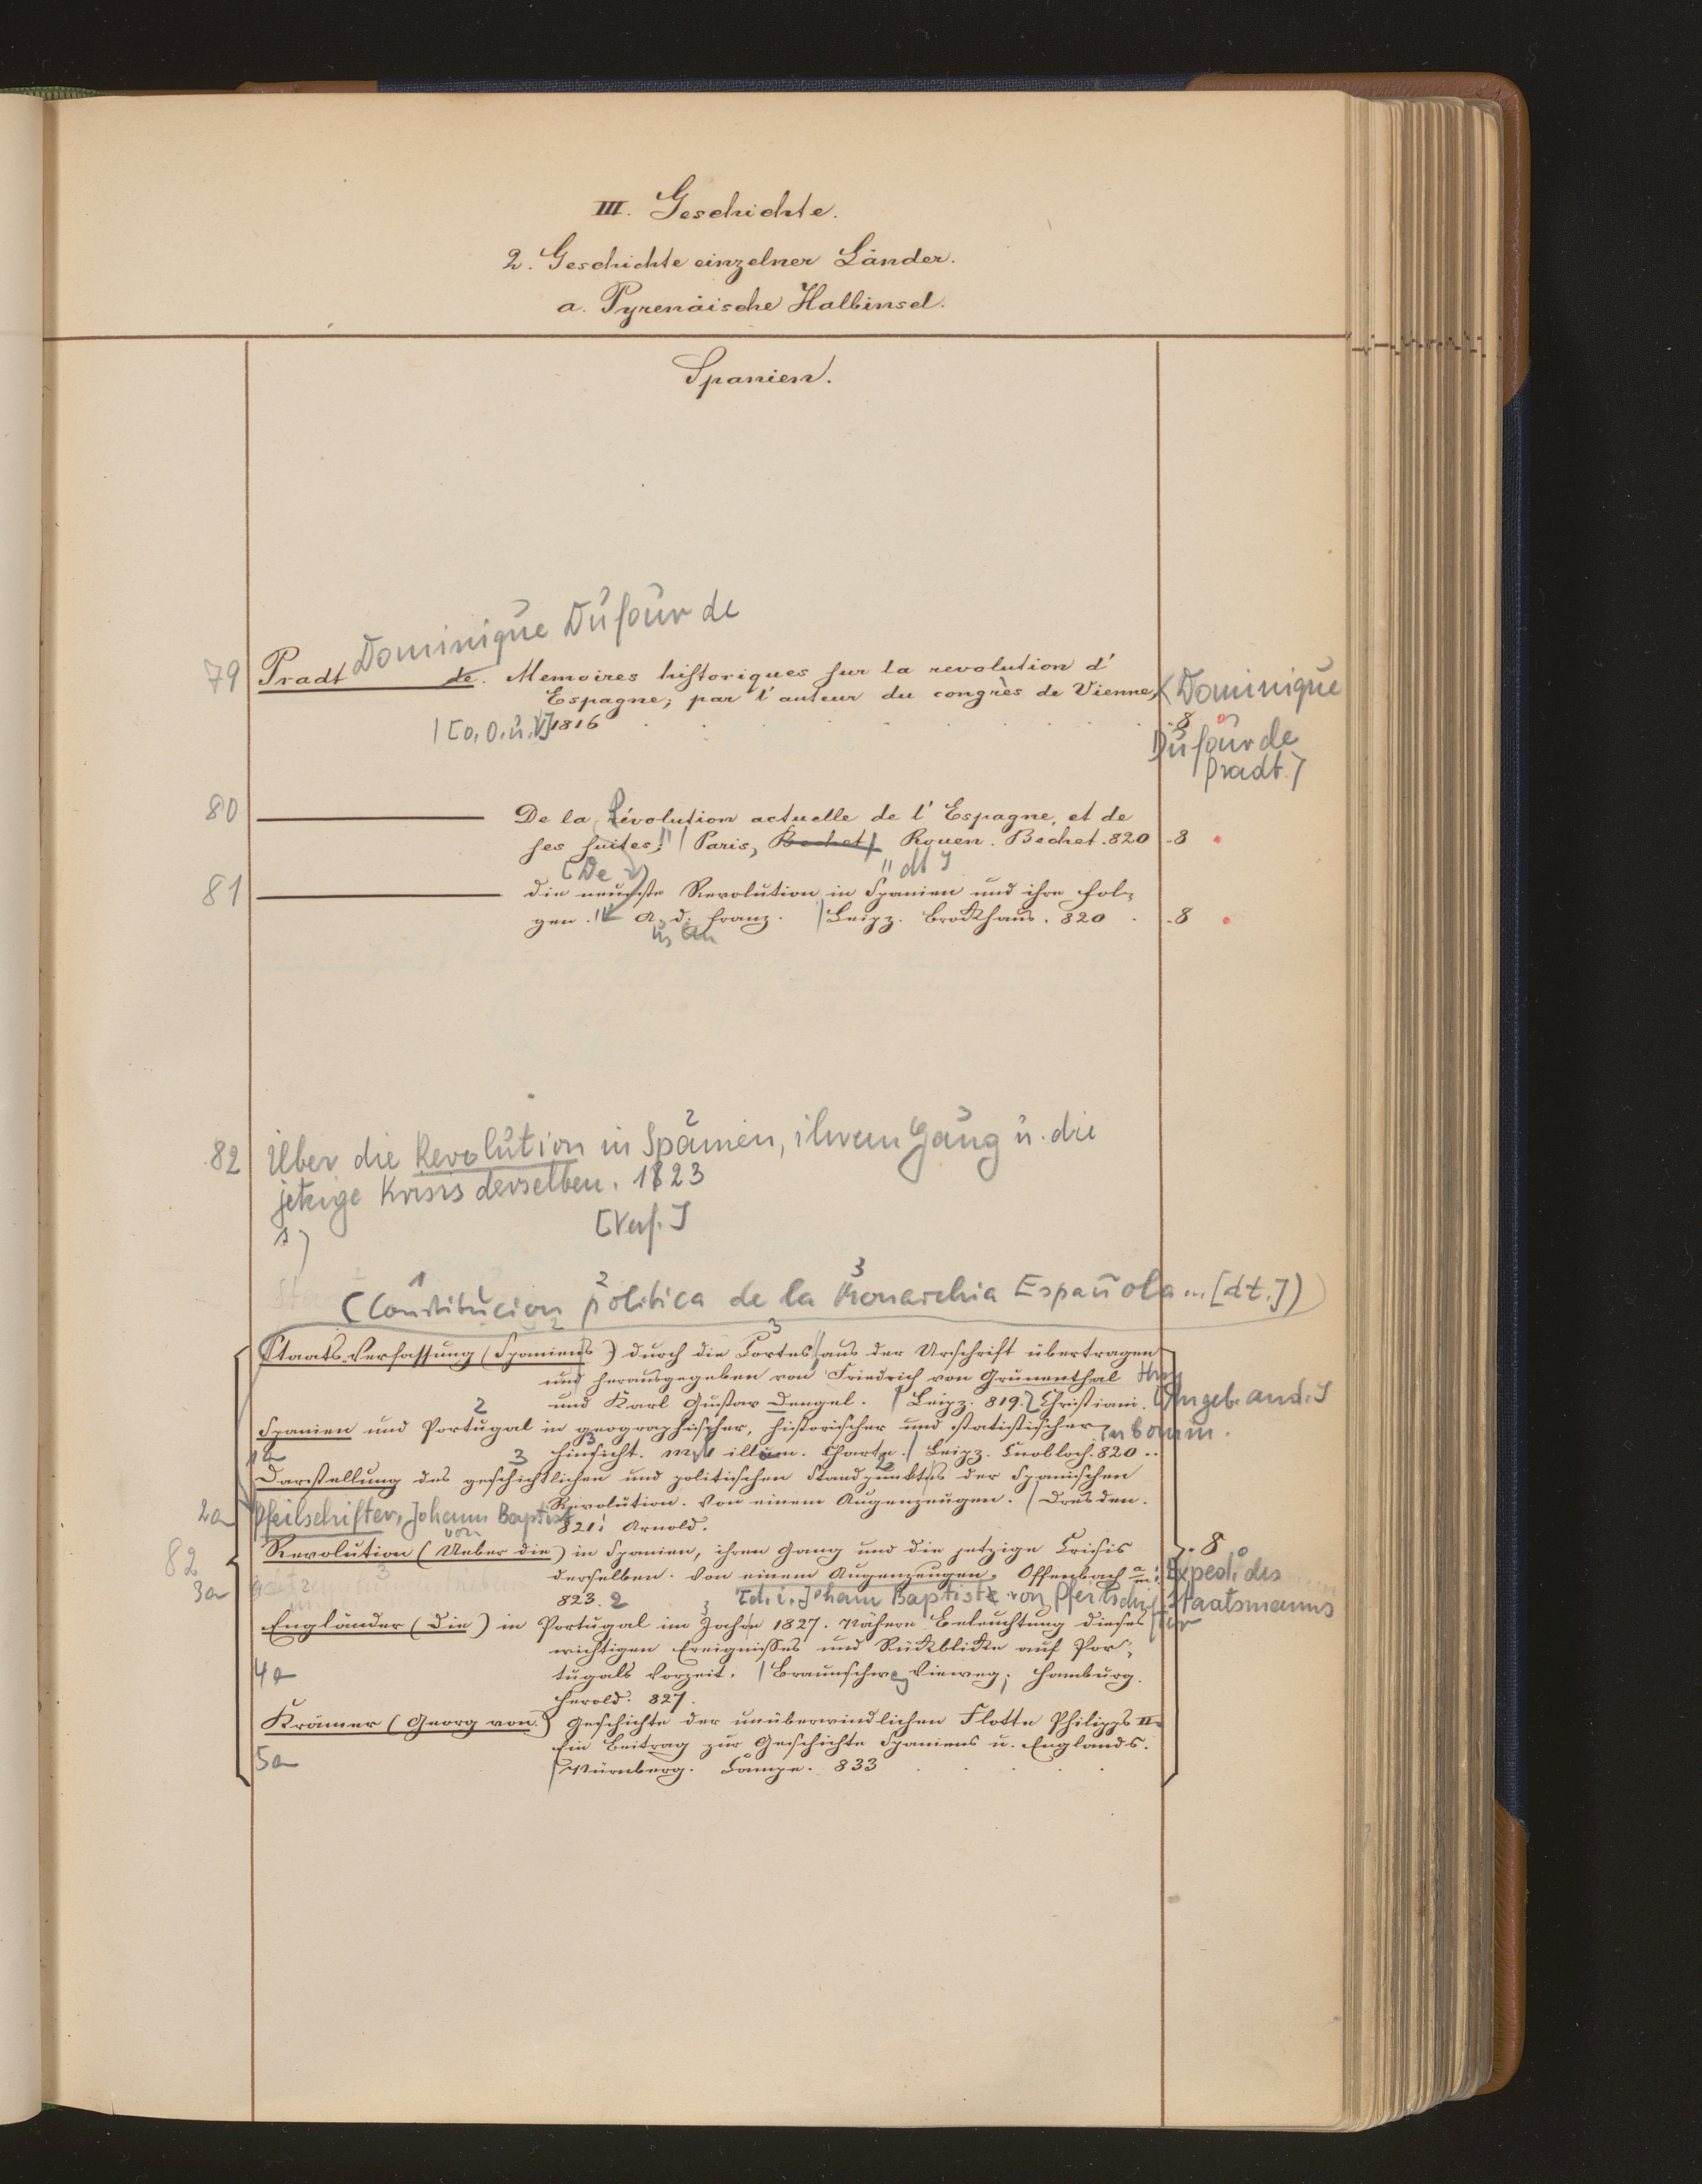 III. Geschichte.
2. Geschichte einzelner Länder.
a. Pyrenäische Halbinsel.
Spanien.
Dominique Dufour de
79 Pradt de. Memoires historiques sur la revolution d'
Espagne; par l'auteur du congrès de Vienne, (Dominique
| [o. O. u. V] 1816 . . . . . . 8
Dufour de
Pradt.)
80 ——— De la Révolution actuelle de l'Espagne, et de
ses suites; | Paris, Bechet, Rouen. Bechet. 820 8
[De " dt]
81 ——— Die neueste Revolution in Spanien und ihre Fol-
gen. A. d. Franz. | Leipz. Brockhaus. 820 . 8
82 Über die Revolution in Spanien, ihren Gang u. die
jetzige Krisis derselben. 1823
[Verf.]
(Constitucion politica de la Monarchia Española ... [dt.])
Staats-Verfassung (Spaniens) durch die Cortes, aus der Urschrift übertragen
und herausgegeben von Friedrich von Grünenthal
und Karl Gustav Dengel. | Leipz. 819. Christiani. Angeb. and.
Spanien und Portugal in geographischer, historischer und statistischer
1a Hinsicht. Mit illum. Charte. | Leipz. Knobloch. 820 ..
Darstellung des geschichtlichen und politischen Standpunktes der Spanischen
Revolution. Von einem Augenzeugen. | Dresden.
2a Pfeilschifter, Johann Baptist von 821. Arnold.
82 Revolution (Ueber die) in Spanien, ihren Gang und die jetzige Crisis 8
3a derselben. Von einem Augenzeugen. Offenbach a/m: Exped. des
823. 2 [d. i. Johann Baptist von Pfeilschifter Staatsmanns
Engländer (Die) in Portugal im Jahre 1827. Nähere Beleuchtung dieses
wichtigen Ereignisses und Rückblicke auf Por-
4a tugals Vorzeit. | Braunschweig Vieweg; Hamburg.
Herold. 827.
Krämer (Georg von) Geschichte der unüberwindlichen Flotte Philipps II.
Ein Beitrag zur Geschichte Spaniens u. Englands.
5a | Nürnberg. Campe. 833 . . . .